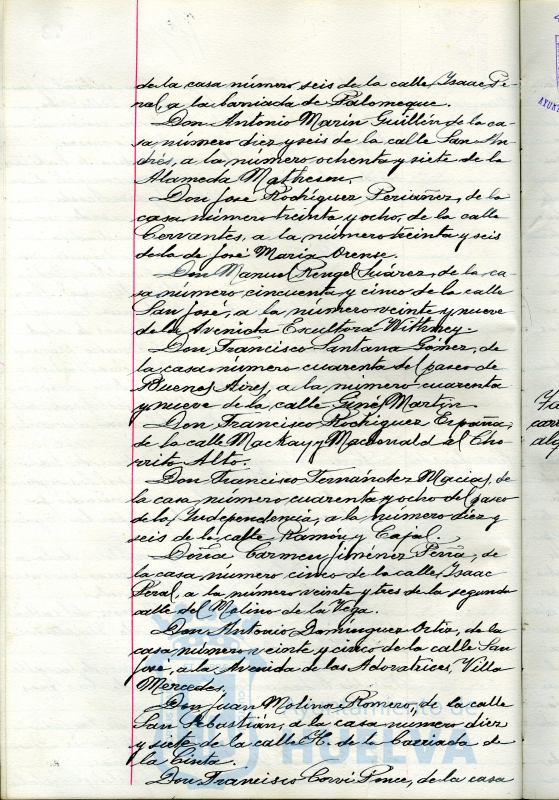 de la casa número seis de la calle Isaac Pe-
ral, a la barriada de Palomeque.
Don Antonio Marín Guillén de la ca-
sa número diez y seis de la calle San An-
drés, a la número ochenta y siete de la
Alameda Mathesou.
Don José Rodríguez Periañez, de la
casa número treinta y ocho, de la calle
Cervantes, a la número treinta y seis
de la de José María Orense.
Don Manuel Rengel Suárez, de la ca-
sa número, cincuenta y cinco de la calle
San José, a la número veinte y nueve
de la Avenida Escultora Withney.
Don Francisco Santana Gómez, de
la casa número cuarenta del paseo de
Buenos Aires, a la número cuarenta
y nueve de la calle Ginés Martín
Don Francisco Rodríguez España,
de la calle Mackay y Macdonald al Cho-
rrito Alto.
Don Francisco Fernández Macías, de
la casa número cuarenta y ocho del paseo
de la Independencia, a la número diez y
seis de la calle Ramón y Cajal.
Doña Carmen Jiménez Peña, de
la casa número cinco de la calle Isaac
Peral, a la número veinte y tres de la segunda
calle del Molino de la Vega.
Don Antonio Domínguez Ortiz, de la
casa número veinte y cinco de la calle San
José, a la Avenida de las Adoratrices, Villa
Mercedes.
Don Juan Molina Romero, de la calle
San Sebastián, a la casa número diez
y siete de la calle H. de la Barriada de
la Cinta.
Don Francisco Corvi Ponce, de la casa
Ayuntamiento de
HUELVA